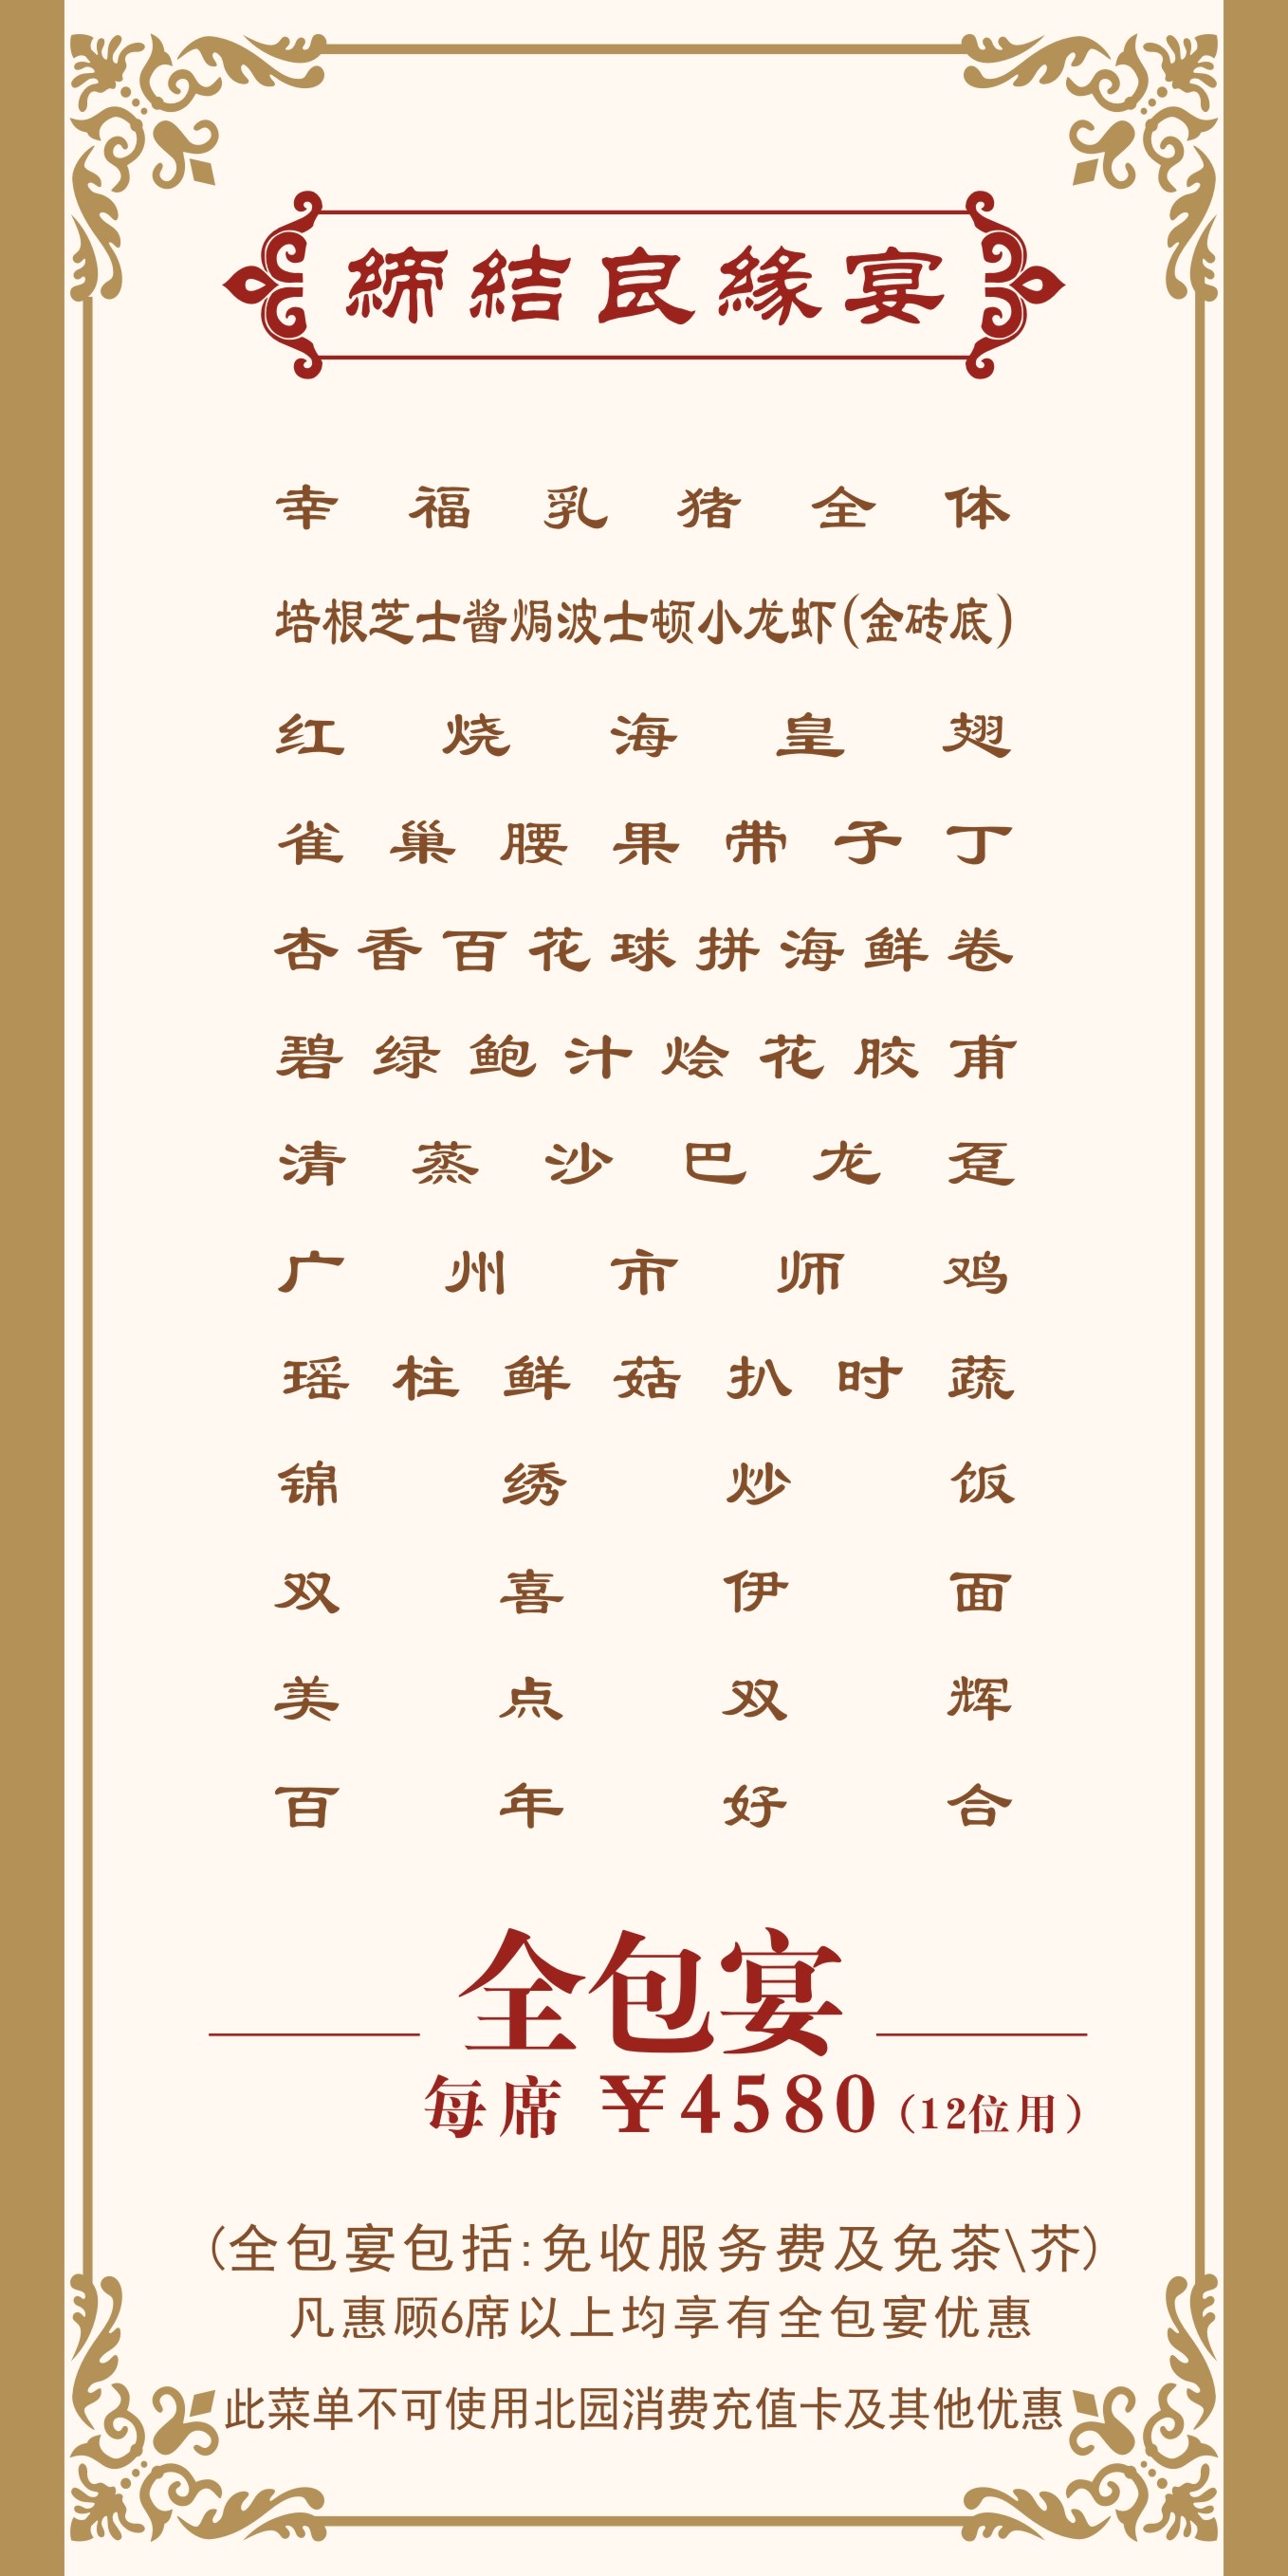 締結良緣宴
幸福乳猪全体
培根芝士酱焗波士顿小龙虾(金砖底)
红烧海皇翅
雀巢腰果带子丁
杏香百花球拼海鲜卷
碧绿鲍汁烩花胶甫
清蒸沙巴龙趸
广州市师鸡
瑶柱鲜菇扒时蔬
锦绣炒饭
双喜伊面
美点双辉
百年好合
全包宴
每席 ￥4580（12位用）
(全包宴包括:免收服务费及免茶\芥)
凡惠顾6席以上均享有全包宴优惠
此菜单不可使用北园消费充值卡及其他优惠